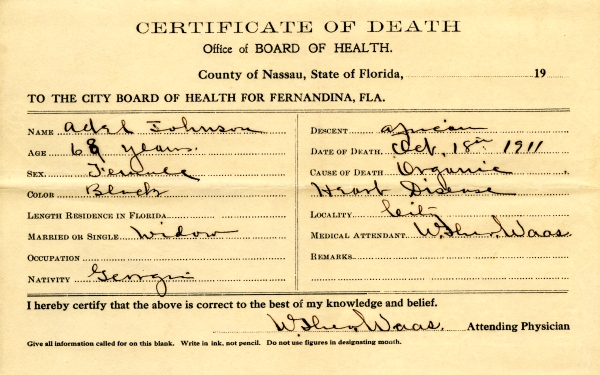 CERTIFICATE OF DEATH
Office of BOARD OF HEALTH.
County of Nassau, State of Florida, 19
TO THE CITY BOARD OF HEALTH FOR FERNANDINA, FLA.
NAME Adel Johnson
AGE 68 years.
SEX. Female
COLOR Black
LENGTH RESIDENCE IN FLORIDA
MARRIED OR SINGLE Widow
OCCUPATION
NATIVITY Georgia
DESCENT African
DATE OF DEATH. Oct, 18th 1911
CAUSE OF DEATH Organic
Heart Disease
LOCALITY City
MEDICAL ATTENDANT Waas.
REMARKS
I hereby certify that the above is correct to the best of my knowledge and belief.
Waas. Attending Physician
Give all information called for on this blank. Write in ink, not pencil. Do not use figures in designating month.